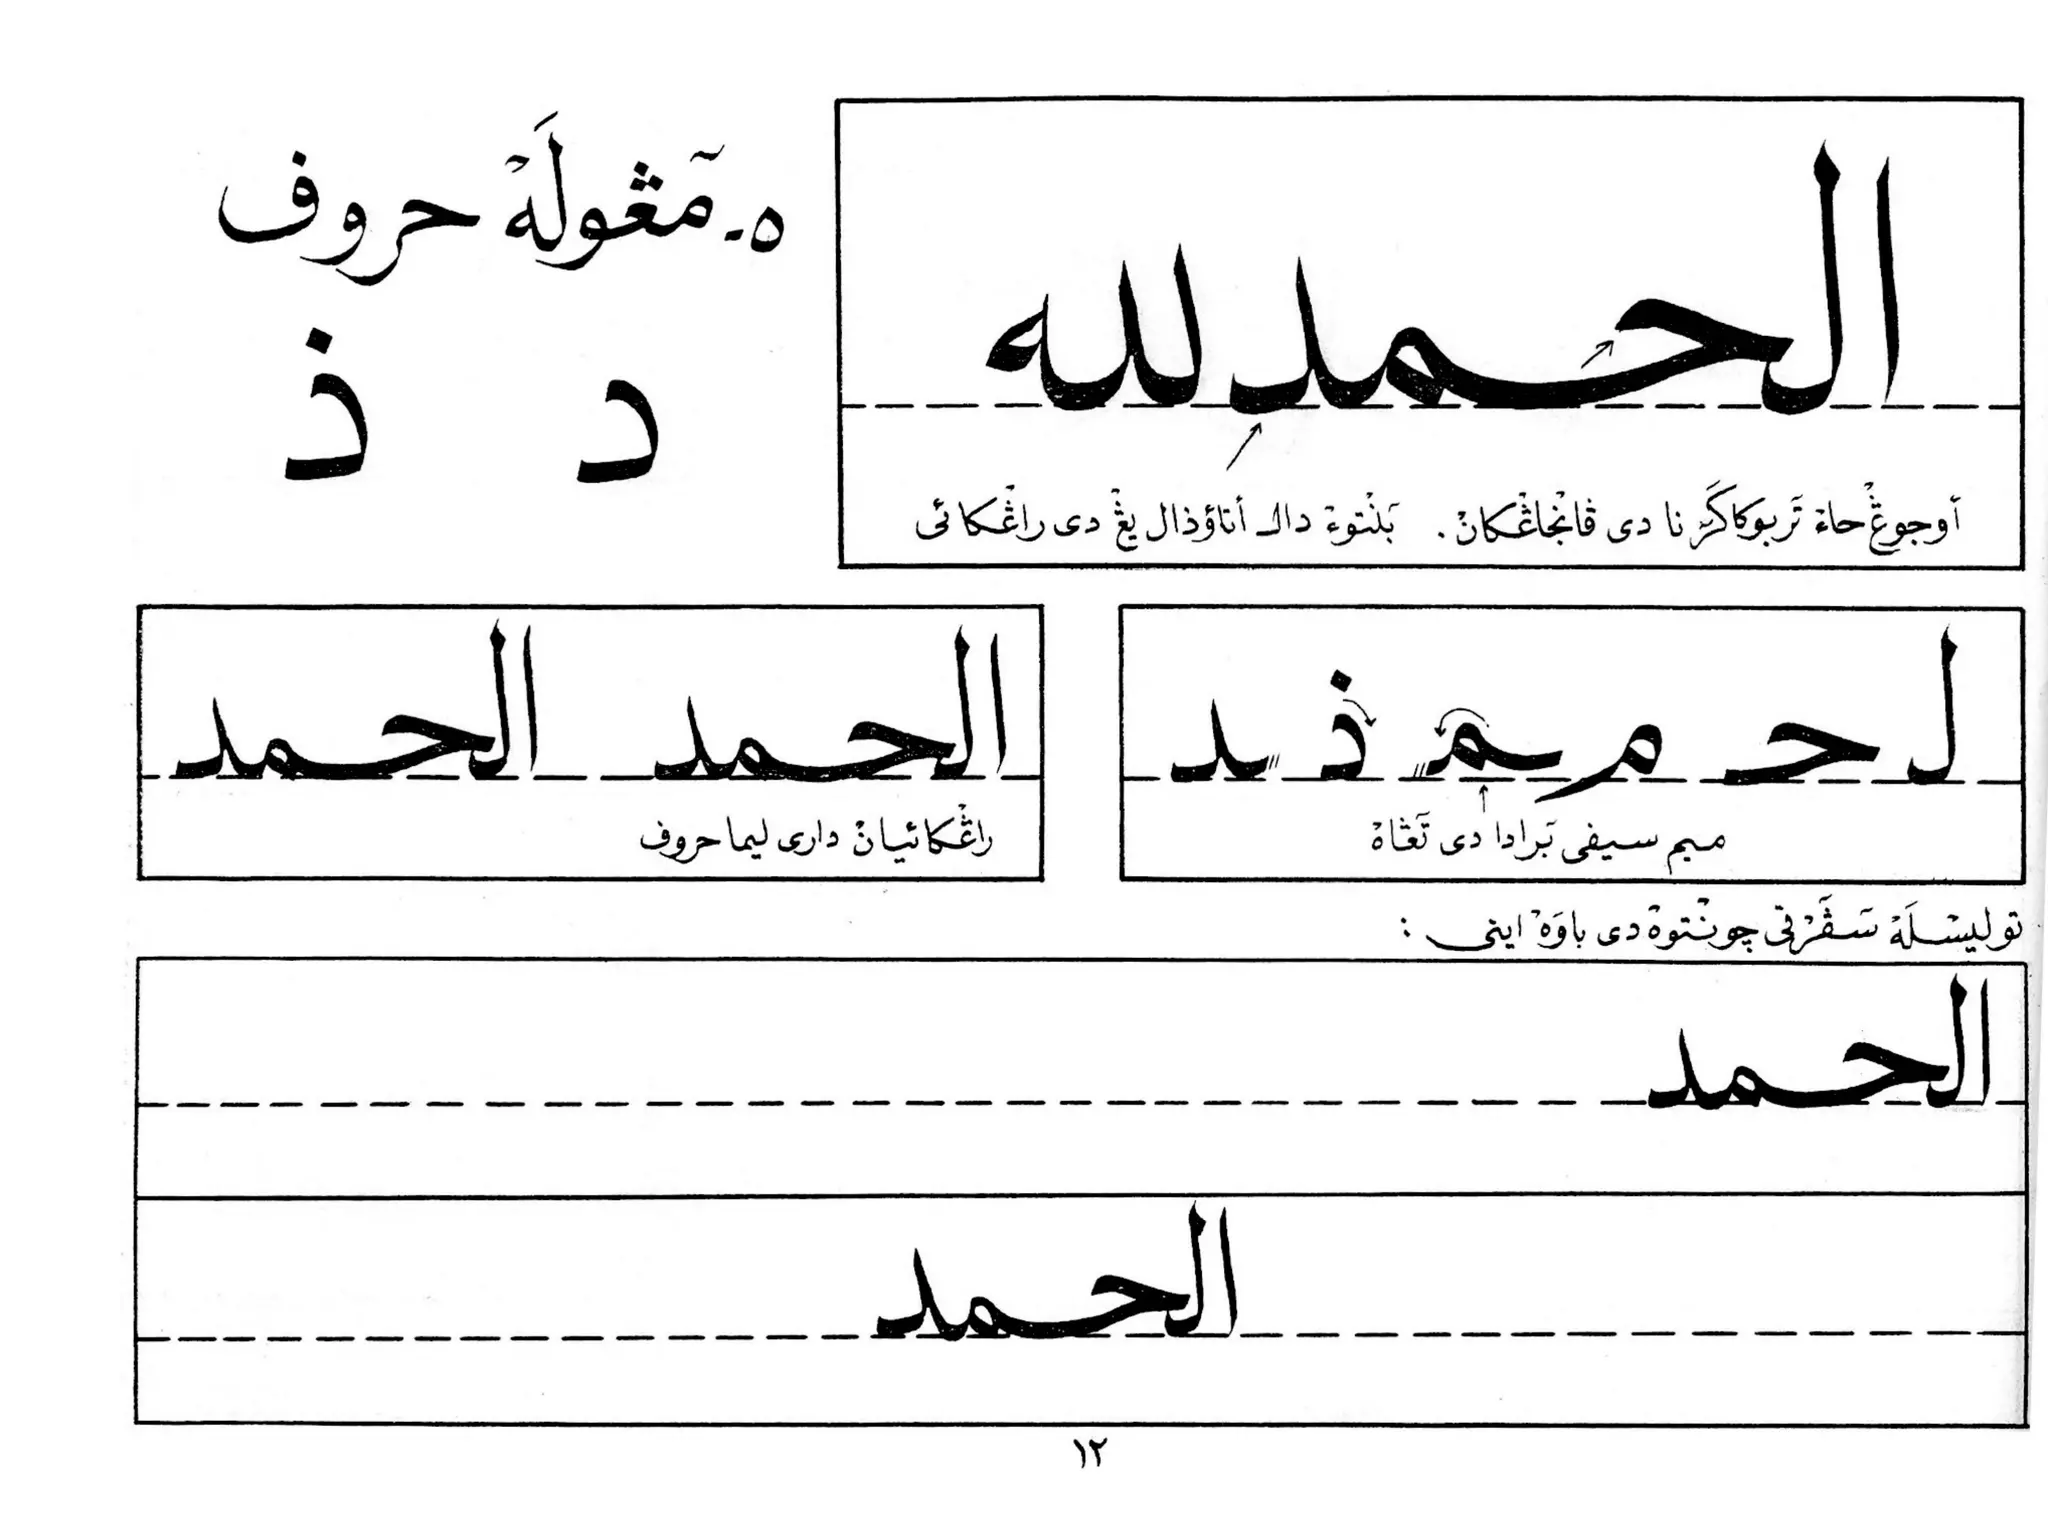 ٥- مڠولَهْ حروف
د ذ
الحمد لله
أوجوڠْ حاءْ تَربوكا كَرَنا دى ڤانْجاڠْكانْ. بَنْتوءْ دال أتاؤ ذال يڠْ دى راڠْكائى
ل ح م ـمـ ذ ـد
ميم سيفى بَرادا دى تَڠاهْ
الحمد الحمد
راڠْكائيانْ دارى ليما حروف
توليسْلَهْ سَڤَرْتي چونْتوهْ دى باوَهْ اينى :
الحمد
الحمد
١٢